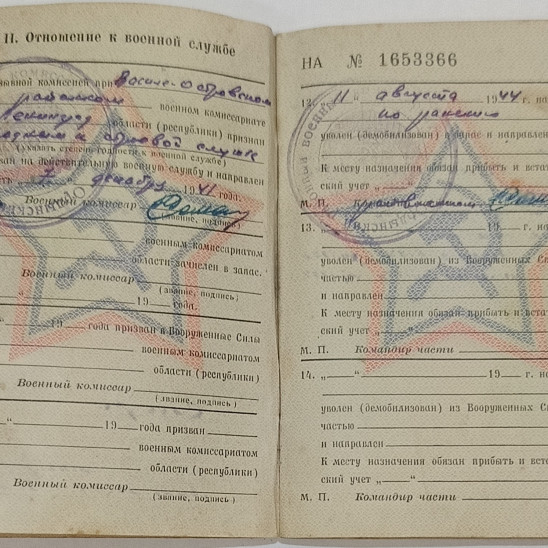 II. Отношение к военной службе
комиссией при Василе-Островском
районном военном комиссариате
Ленинград области (республики) признан
годным к строевой службе
(указать степень годности к военной службе)
ван на действительную военную службу и направлен
декабря 1941 года.
Военный комиссар
(звание, подпись)
военным комиссариатом
области зачислен в запас.
Военный комиссар
(звание, подпись)
19 года.
19 года призван в Вооруженные Силы
военным комиссариатом
области (республики)
Военный комиссар
(звание, подпись)
“ 19 года призван
военным комиссариатом
области (республики)
Военный комиссар
(звание, подпись)
НА № 1653366
12. „11“ августа 1944 г. по
по ранению
уволен (демобилизован) в запас и направлен
К месту назначения обязан прибыть и
ский учет „
М. П.
13. 19 г. на
уволен (демобилизован) из Вооруженных С
частью
и направлен
К месту назначения обязан прибыть и вста
ский учет „ “
М. П. Командир части
14. „ “ 19 г. на
уволен (демобилизован) из Вооруженных С
частью
и направлен
К месту назначения обязан прибыть и вста
ский учет „ “
М. П. Командир части